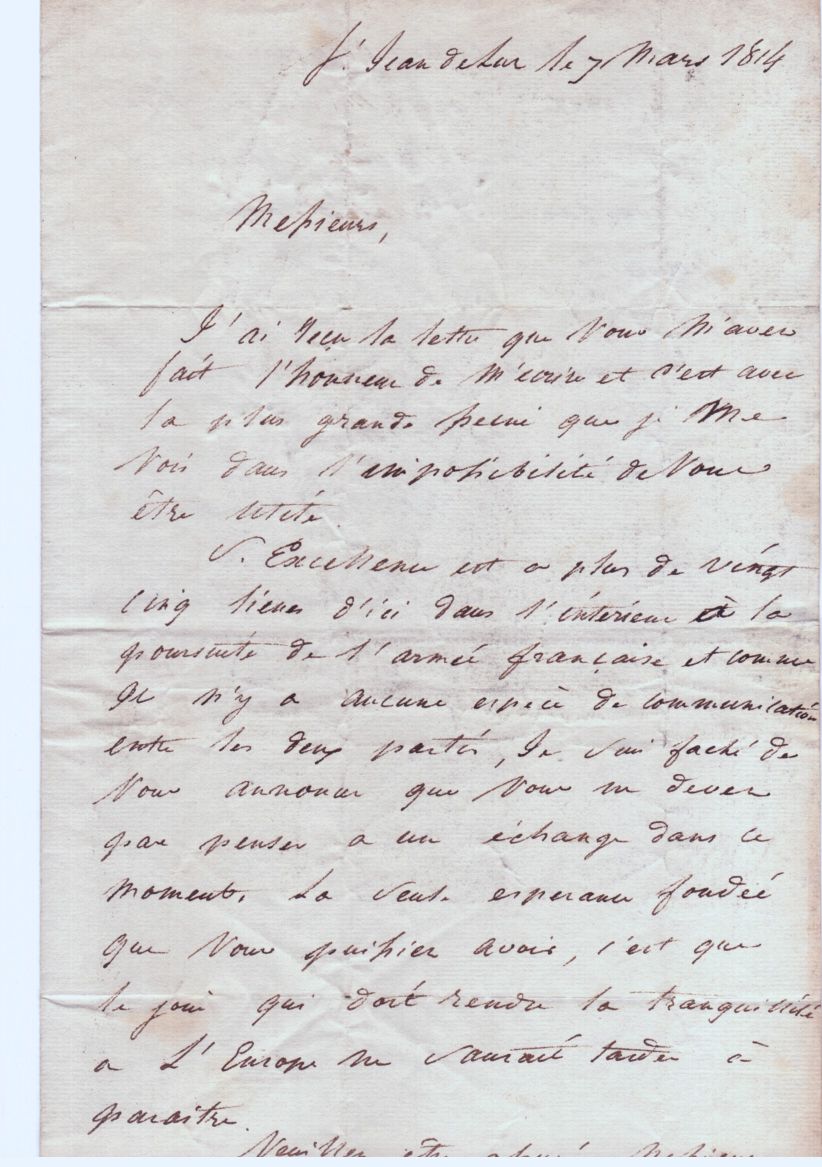 St Jean de Luz le 7 Mars 1814
Messieurs,
J'ai reçu la lettre que Vous m'avez
fait l'honneur de m'écrire et c'est avec
la plus grande peine que je me
vois dans l'impossibilité de Vous
être utile.
S. Excellence est a plus de vingt
cinq lieues d'ici dans l'intérieur à la
poursuite de l'armée française et comme
Il n'y a aucune espèce de communication
entre les deux partis, Je suis faché de
Vous annoncer que Vous ne devez
pas penser a un échange dans ce
moment. La seule esperance fondée
que Vous puissiez avoir, c'est que
le jour qui doit rendre la tranquillité
a L'Europe ne saurait tarder à
paraitre.
Veuillez être assuré, Messieurs